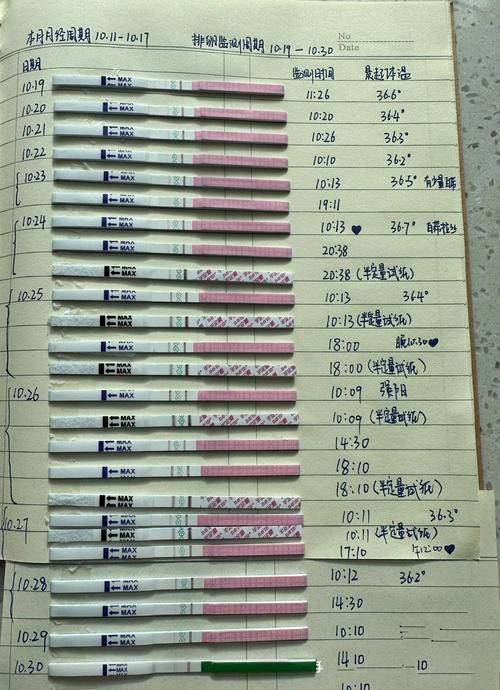 本月月经周期 10.11-10.17 排卵监测周期 10.19-10.30
No
Date
日期 监测时间 晨起体温
10.19 MAX 11:26 36.6°
10.20 MAX 10:20 36.4°
10.21 MAX 10:26 36.3°
10.22 MAX 10:10 36.2°
10.23 MAX 10:13 36.5° 有少量白带
MAX 19:11
10.24 MAX 10:13 36.7° 白带拉丝
MAX 20:38
MAX 20:38 (半定量试纸)
10.25 MAX 10:13 36.4°
MAX 10:13 (半定量试纸)
MAX 18:00 晚10:30
MAX 18:00 (半定量试纸)
10.26 MAX 10:09 强阳
MAX 10:09 (半定量试纸)
MAX 14:30
MAX 18:10
MAX 18:10 (半定量试纸)
10.27 MAX 10:11 36.3°
MAX 10:11 (半定量试纸)
MAX 17:10 午12:00
10.28 MAX 10:12 36.2°
MAX 14:30
10.29 MAX 10:10
10.30 MAX 14:10 10